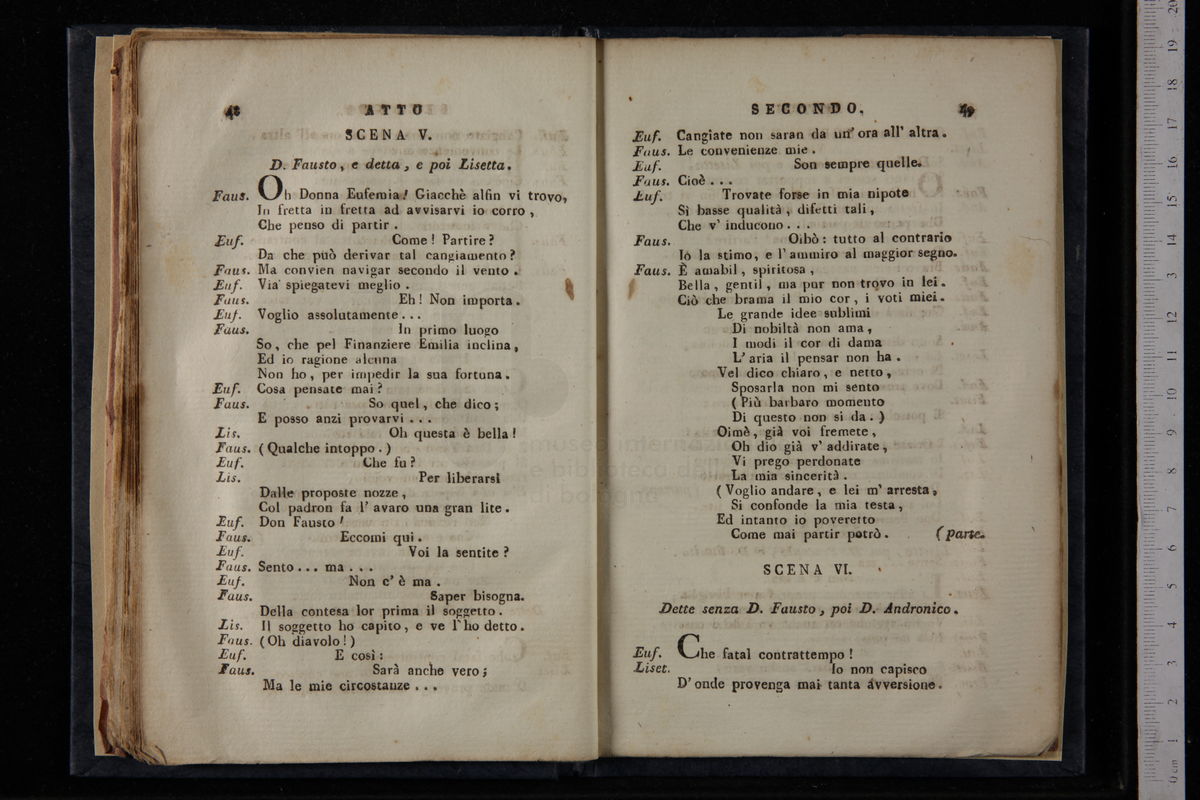 48
ATTO
SCENA V.
D. Fausto, e detta, e poi Lisetta.
Faus. Oh Donna Eufemia! Giacchè alfin vi trovo,
In fretta in fretta ad avvisarvi io corro,
Che penso di partir.
Euf. Come! Partire?
Da che può derivar tal cangiamento?
Faus. Ma convien navigar secondo il vento.
Euf. Via spiegatevi meglio.
Faus. Eh! Non importa.
Euf. Voglio assolutamente...
Faus. In primo luogo
So, che pel Finanziere Emilia inclina,
Ed io ragione alcuna
Non ho, per impedir la sua fortuna.
Euf. Cosa pensate mai?
Faus. So quel, che dico;
E posso anzi provarvi...
Lis. Oh questa è bella!
Faus. (Qualche intoppo.)
Euf. Che fu?
Lis. Per liberarsi
Dalle proposte nozze,
Col padron fa l'avaro una gran lite.
Euf. Don Fausto!
Faus. Eccomi qui.
Euf. Voi la sentite?
Faus. Sento... ma...
Euf. Non c'è ma.
Faus. Saper bisogna.
Della contesa lor prima il soggetto.
Lis. Il soggetto ho capito, e ve l'ho detto.
Faus. (Oh diavolo!)
Euf. E così:
Faus. Sarà anche vero;
Ma le mie circostanze...
SECONDO.
49
Euf. Cangiate non saran da un'ora all'altra.
Faus. Le convenienze mie.
Euf. Son sempre quelle.
Faus. Cioè...
Euf. Trovate forse in mia nipote
Sì basse qualità, difetti tali,
Che v'inducono...
Faus. Oibò: tutto al contrario
Io la stimo, e l'ammiro al maggior segno.
Faus. È amabil, spiritosa,
Bella, gentil, ma pur non trovo in lei.
Ciò che brama il mio cor, i voti miei.
Le grande idee sublimi
Di nobiltà non ama,
I modi il cor di dama
L'aria il pensar non ha.
Vel dico chiaro, e netto,
Sposarla non mi sento
(Più barbaro momento
Di questo non si da.)
Oimè, già voi fremete,
Oh dio già v'addirate,
Vi prego perdonate
La mia sincerità.
(Voglio andare, e lei m'arresta,
Si confonde la mia testa,
Ed intanto io poveretto
Come mai partir potrò. (parte.
SCENA VI.
Dette senza D. Fausto, poi D. Andronico.
Euf. Che fatal contrattempo!
Liset. Io non capisco
D'onde provenga mai tanta avversione.